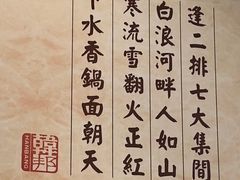 逢二排七大集間
白浪河畔人如山
寒流雪翻火正紅
下水香鍋面朝天
韓邦
HANBANG